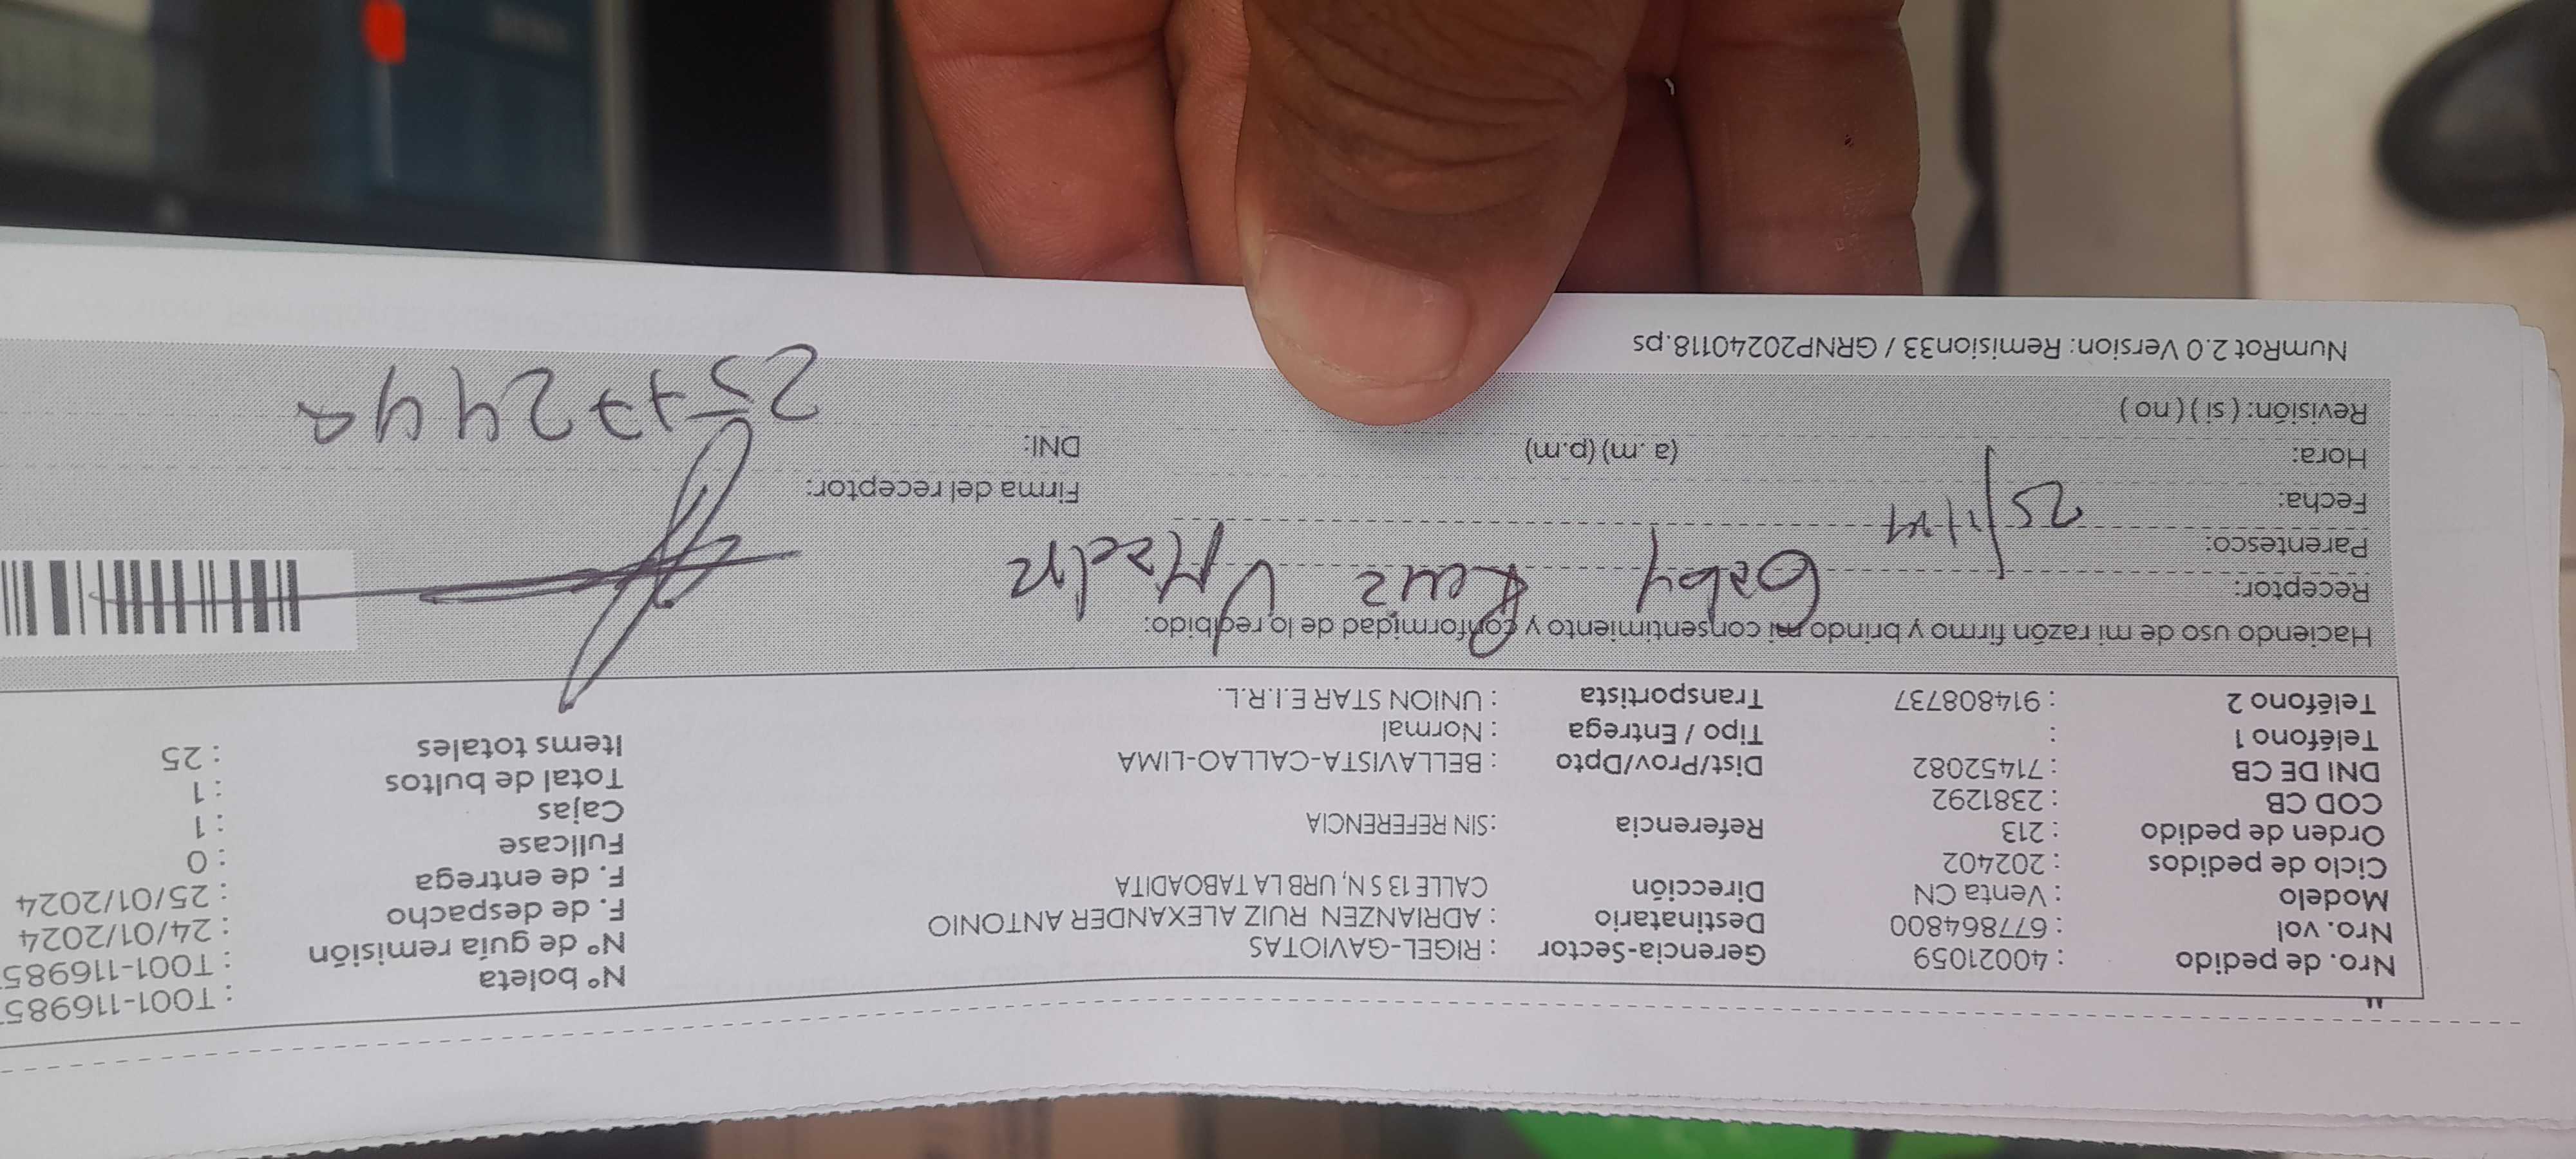 Nro. de pedido : 40021059 Gerencia-Sector : RIGEL-GAVIOTAS Nº boleta : T001-116985
Nro. vol : 677864800 Destinatario : ADRIANZEN RUIZ ALEXANDER ANTONIO Nº de guía remisión : T001-116985
Modelo : Venta CN Dirección CALLE 13 S N, URB LA TABOADITA F. de despacho : 24/01/2024
Ciclo de pedidos : 202402 F. de entrega : 25/01/2024
Orden de pedido : 213 Referencia :SIN REFERENCIA Fullcase : 0
COD CB : 2381292 Cajas : 1
DNI DE CB : 71452082 Dist/Prov/Dpto : BELLAVISTA-CALLAO-LIMA Total de bultos : 1
Teléfono 1 : Tipo / Entrega : Normal Items totales : 25
Teléfono 2 : 914808737 Transportista : UNION STAR E.I.R.L.
Haciendo uso de mi razón firmo y brindo mi consentimiento y conformidad de lo recibido:
Receptor: Gaby Ruiz V
Parentesco:
Fecha: Firma del receptor:
Hora: (a .m) (p.m) DNI:
Revisión: ( si ) ( no )
NumRot 2.0 Version: Remision33 / GRNP20240118.ps